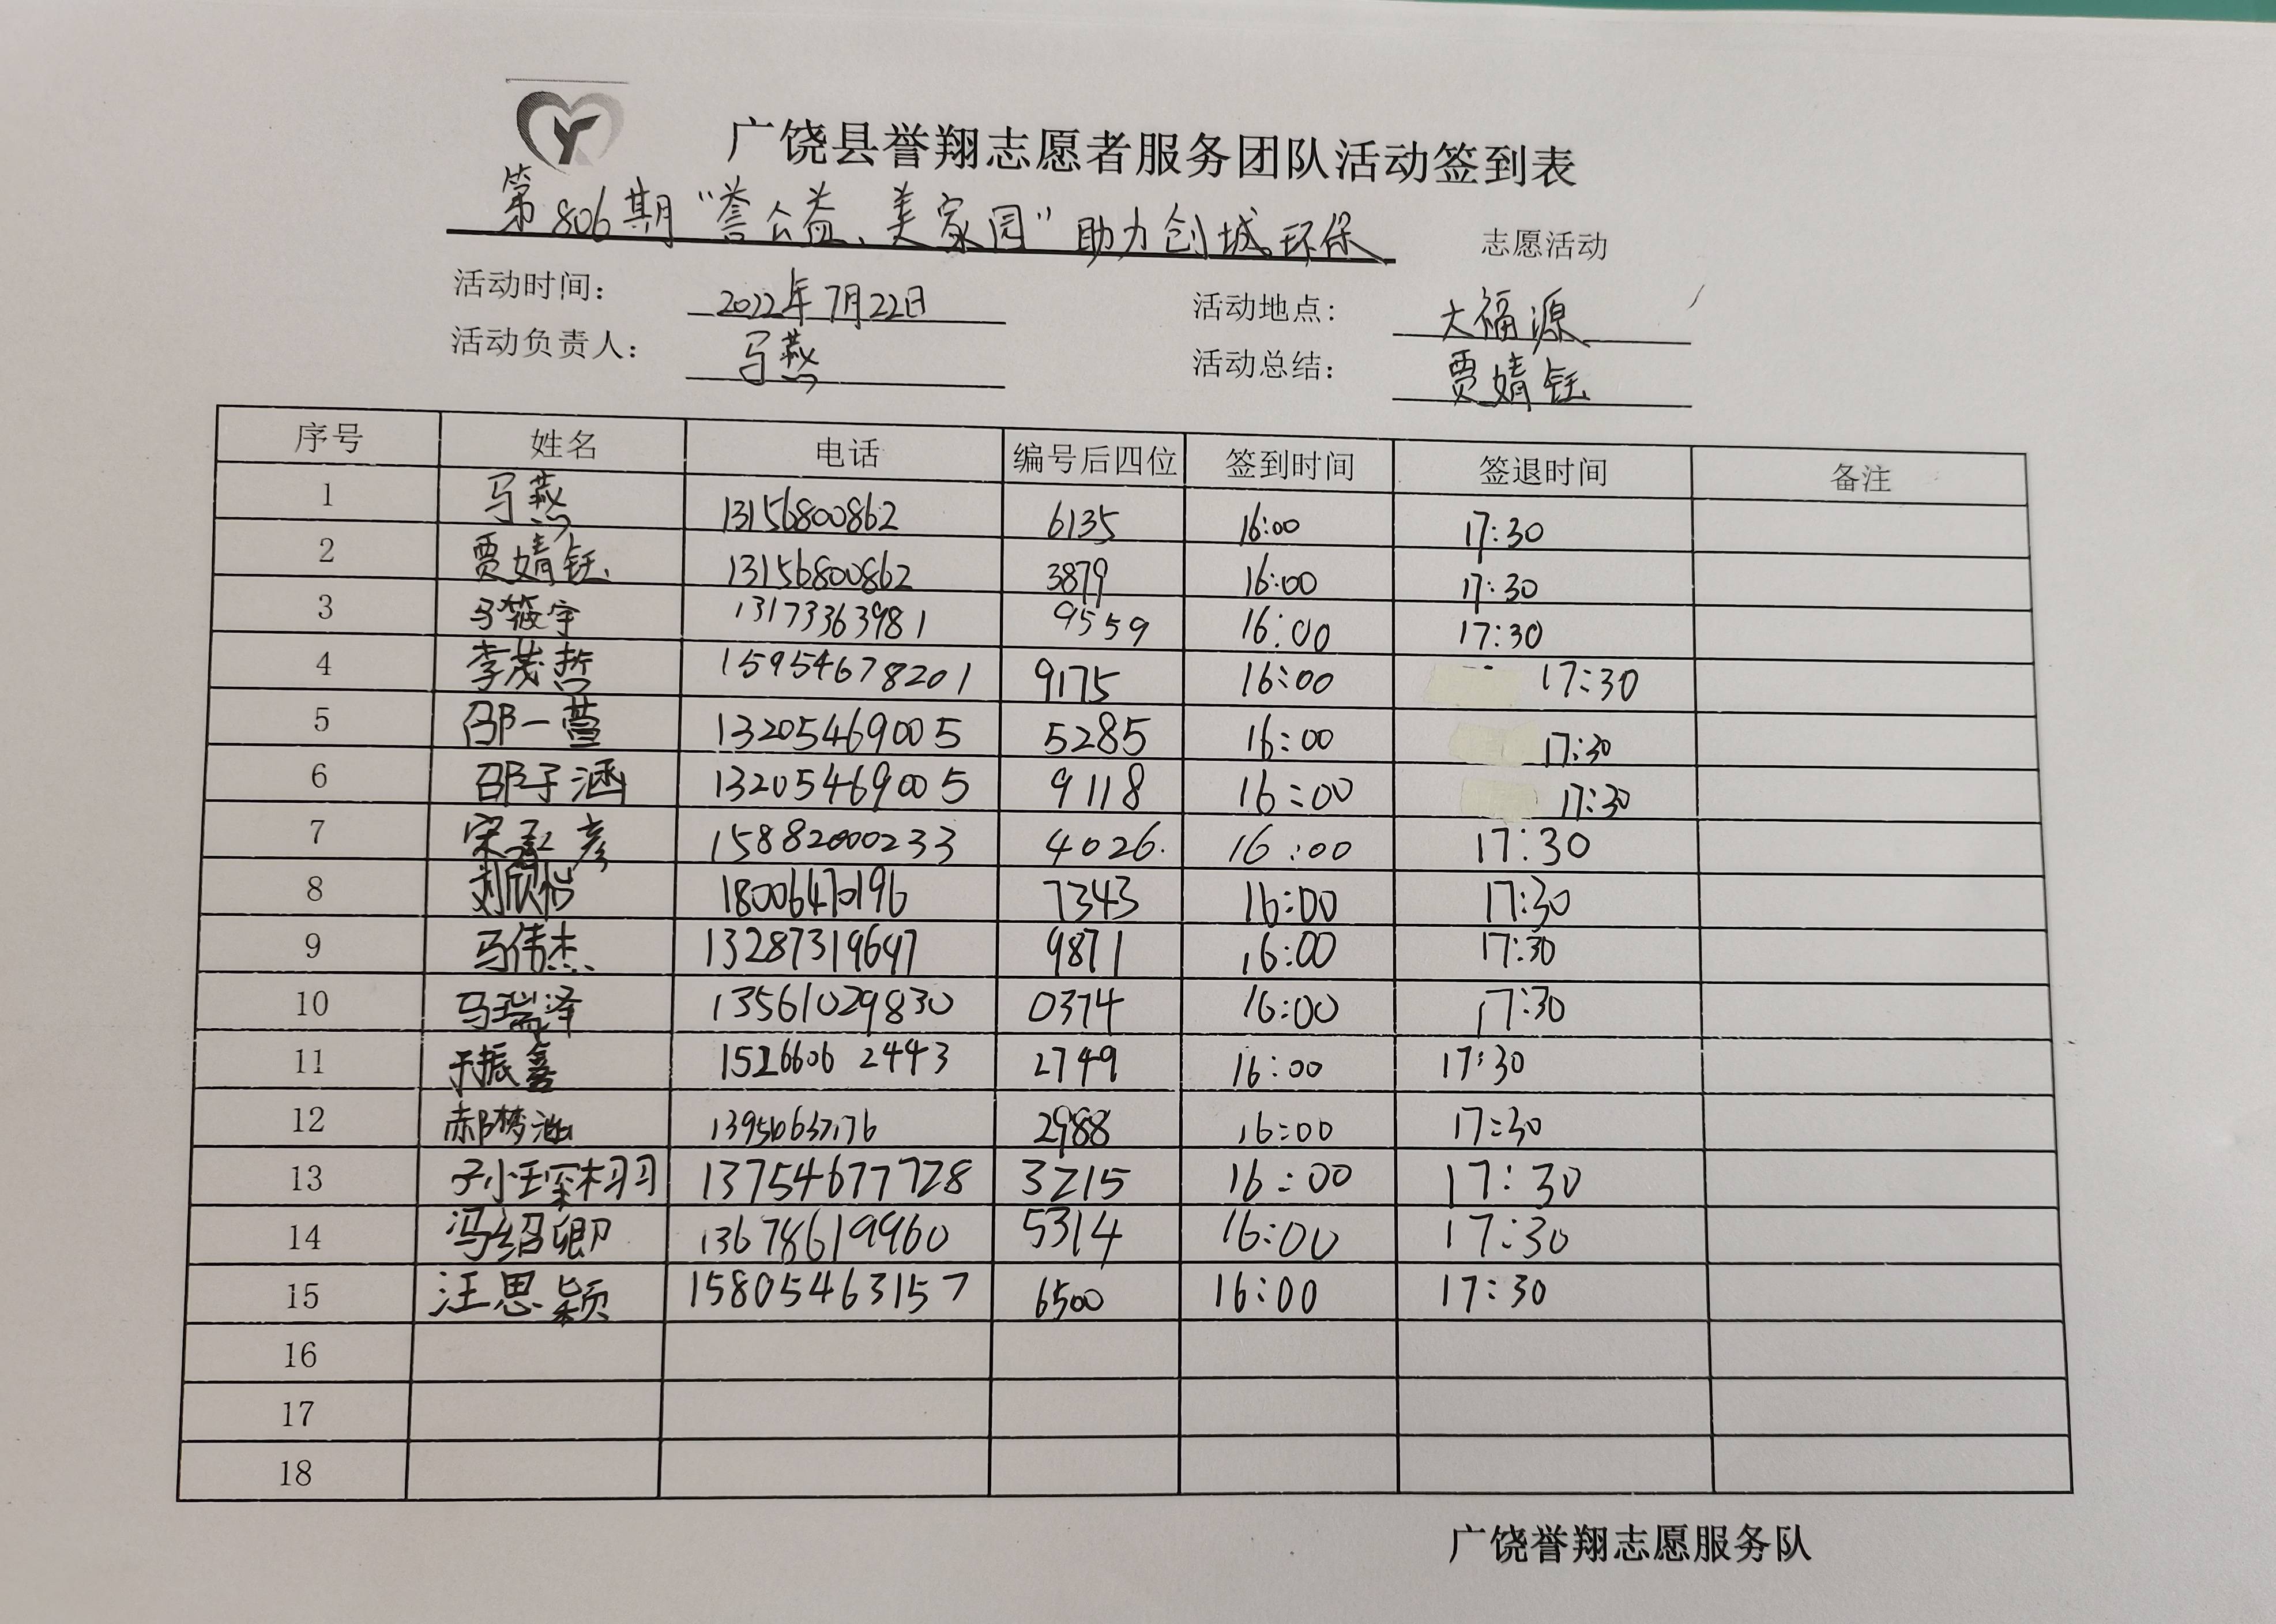 广饶县誉翔志愿者服务团队活动签到表
第806期“誉公益、美家园”助力创城环保 志愿活动
活动时间： 2022年7月22日 活动地点： 大福源
活动负责人： 马燕 活动总结： 贾婧钰
序号 姓名 电话 编号后四位 签到时间 签退时间 备注
1 马燕 13156800862 6135 16:00 17:30
2 贾婧钰 13156800862 3879 16:00 17:30
3 马筱宇 13173363981 9559 16:00 17:30
4 李茂哲 15954678201 9175 16:00 17:30
5 邵一萱 13205469005 5285 16:00 17:30
6 邵子涵 13205469005 9118 16:00 17:30
7 宋 彦 15882000233 4026. 16:00 17:30
8 刘欣怡 18006470196 7343 16:00 17:30
9 马伟杰 13287319647 9871 16:00 17:30
10 马瑞泽 13561029830 0374 16:00 17:30
11 于振鑫 15266062443 2749 16:00 17:30
12 郝梦涵 2988 16:00 17:30
13 孙琛栩 13754677728 3215 16:00 17:30
14 冯绍卿 13678619960 5314 16:00 17:30
15 汪思颖 15805463157 6500 16:00 17:30
16
17
18
广饶誉翔志愿服务队